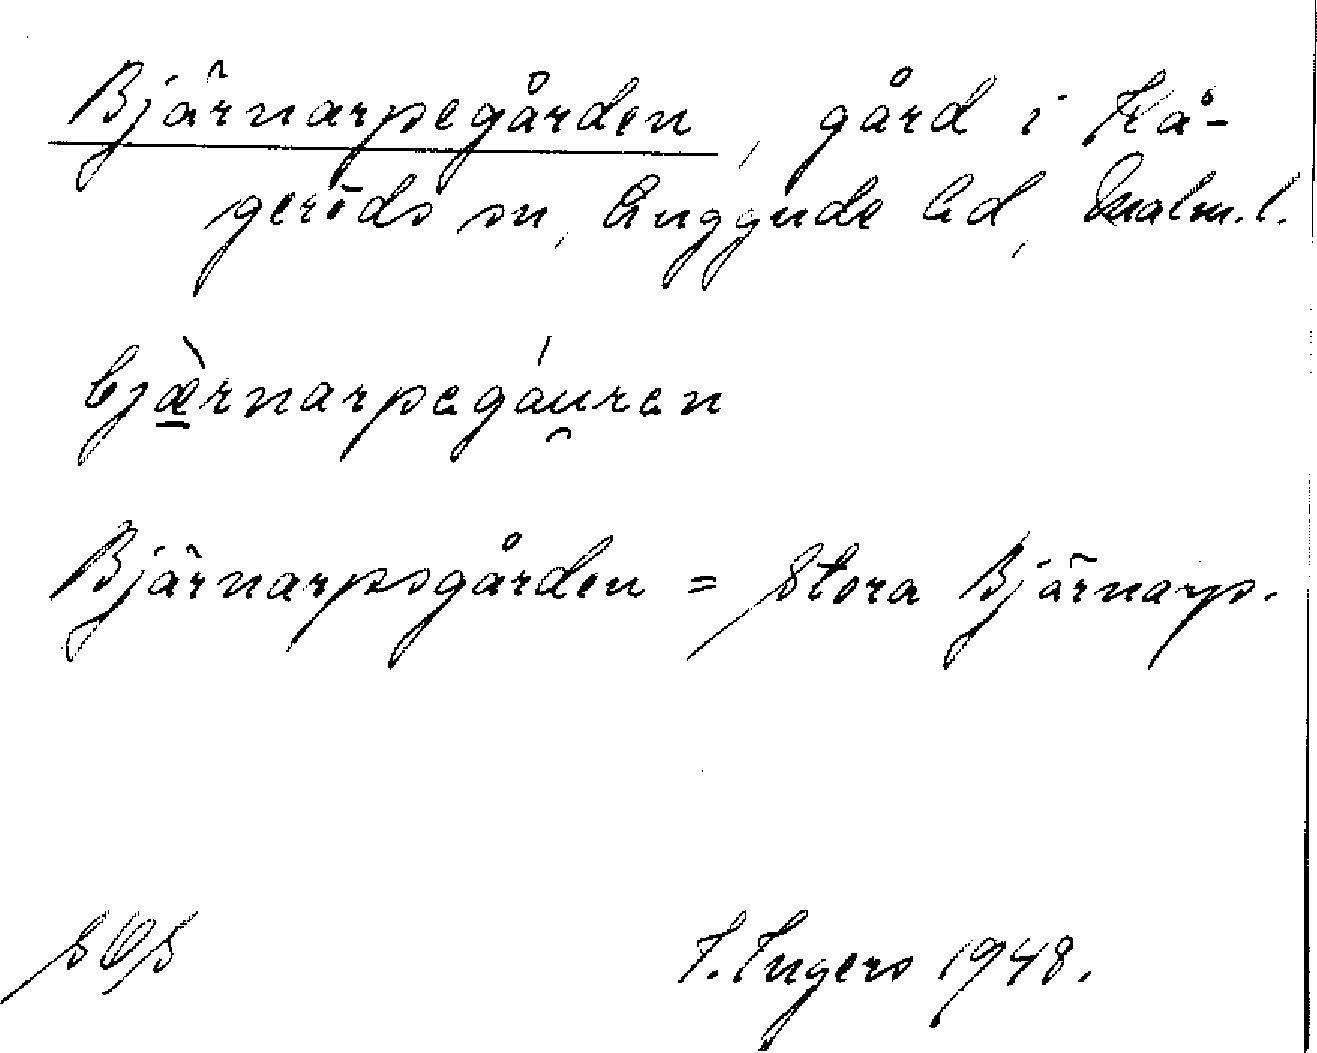 Bjärnarpegården, gård i Kå-
geröds sn, Luggude hd, Malm. l.
bjæ̱̀rnarpegáu̯ren
Bjärnarpsgården = Stora Bjärnarp.
SOS
I. Ingers 1948.